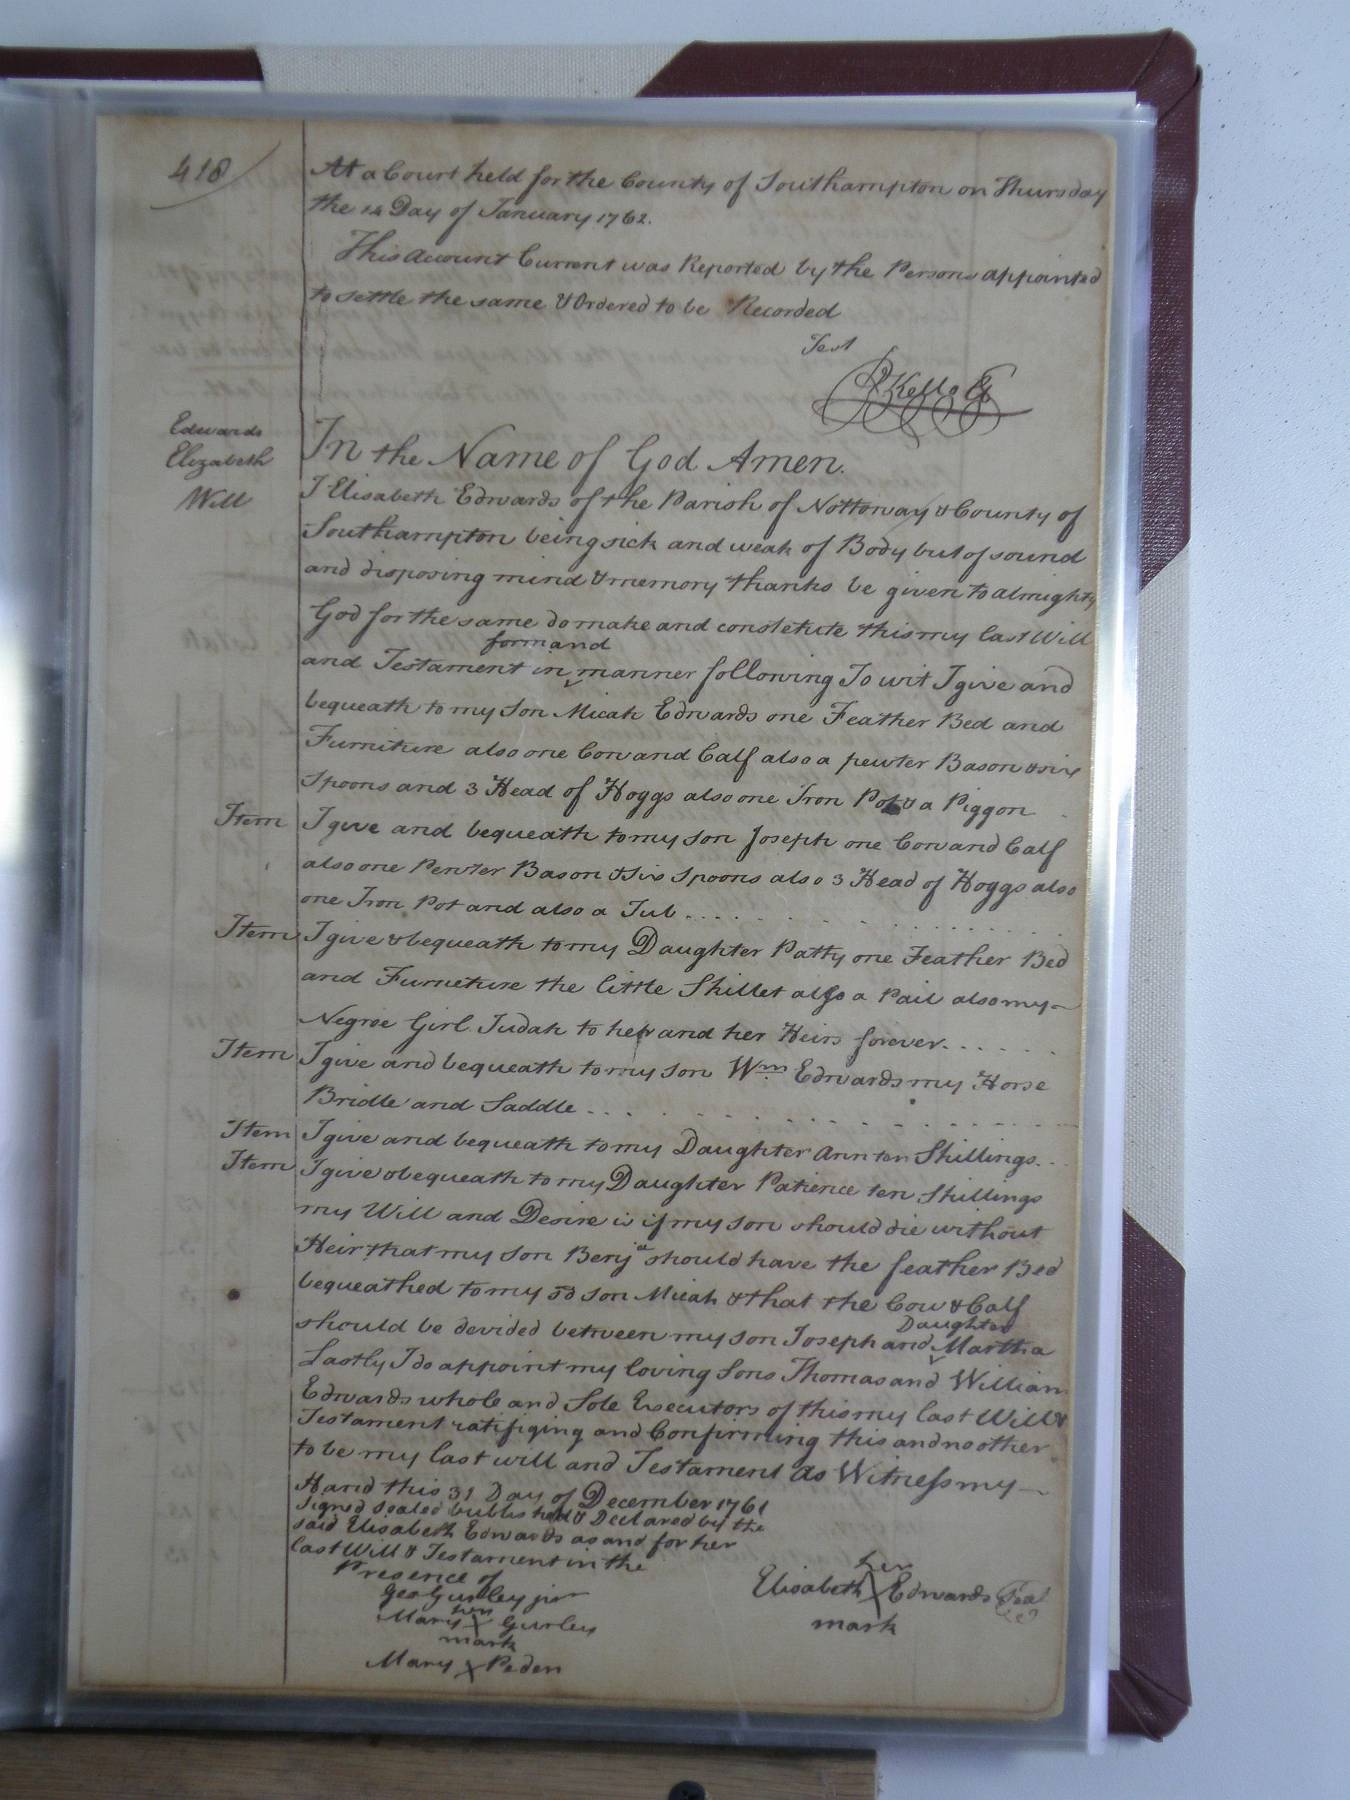 418
At a Court held for the County of Southampton on Thursday
the 14 Day of January 1762.
This Account Current was Reported by the Persons appointed
to settle the same & Ordered to be Recorded
Test
Edwards
Elizabeth
Will
In the Name of God Amen.
I Elisabeth Edwards of the Parish of Nottoway & County of
Southampton being sick and weak of Body but of sound
and disposing mind & memory thanks be given to almighty
God for the same do make and constetute this my last Will
form and
and Testament in manner following To wit I give and
bequeath to my Son Micah Edwards one Feather Bed and
Furniture also one Cow and Calf also a pewter Bason & six
Spoons and 3 Head of Hoggs also one Iron Pot & a Piggon
Item I give and bequeath to my son Joseph one Cow and Calf
also one Pewter Bason & Six Spoons also 3 Head of Hoggs also
one Iron Pot and also a Tub
Item I give & bequeath to my Daughter Patty one Feather Bed
and Furneture the little Skillet also a Pail also my
Negroe Girl Judah to her and her Heirs forever
Item I give and bequeath to my son Wm Edwards my Horse
Bridle and Saddle
Item I give and bequeath to my Daughter Ann ten Shillings
Item I give & bequeath to my Daughter Patience ten Shillings
my Will and Desire is if my son should die without
Heir that my son Benja should have the feather Bed
bequeathed to my sd son Micah & that the Cow & Calf
Daughter
should be devided between my son Joseph and Martha
Lastly I do appoint my loving Sons Thomas and William
Edwards whole and Sole Executors of this my last Will &
Testament ratifiging and Confirming this and no other
to be my last will and Testament As Witness my
Hand this 31 Day of December 1761
Signed Sealed & Declared by the
said Elisabeth Edwards as and for her
last Will & Testament in the
Presence of
Geo Gurley jnr
her
Mary X Gurley
mark
Mary X Peden
her
Elisabeth X Edwards Seal
mark